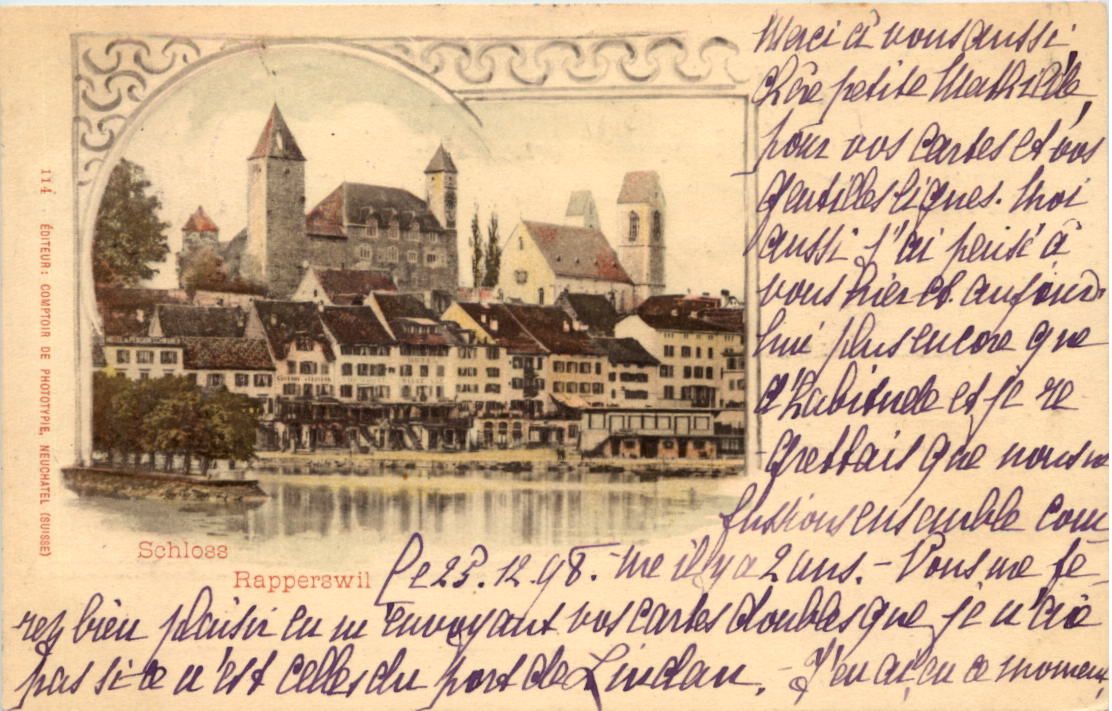 Merci à vous aussi,
chère petite Mathilde,
pour vos cartes et vos
gentilles lignes. Moi
aussi j'ai pensé à
vous hier et aujourd-
hui plus encore que
d'habitude et je re
grettais que nous ne
fussions ensemble com
Le 25.12.98. - me il y a 2 ans. - Vous me fe-
rez bien plaisir en m'envoyant vos cartes doubles que je n'aie
pas si ce n'est celles du port de Lindau. - J'en ai, en ce moment,
Schloss
Rapperswil
114 ÉDITEUR: COMPTOIR DE PHOTOTYPIE, NEUCHATEL (SUISSE)